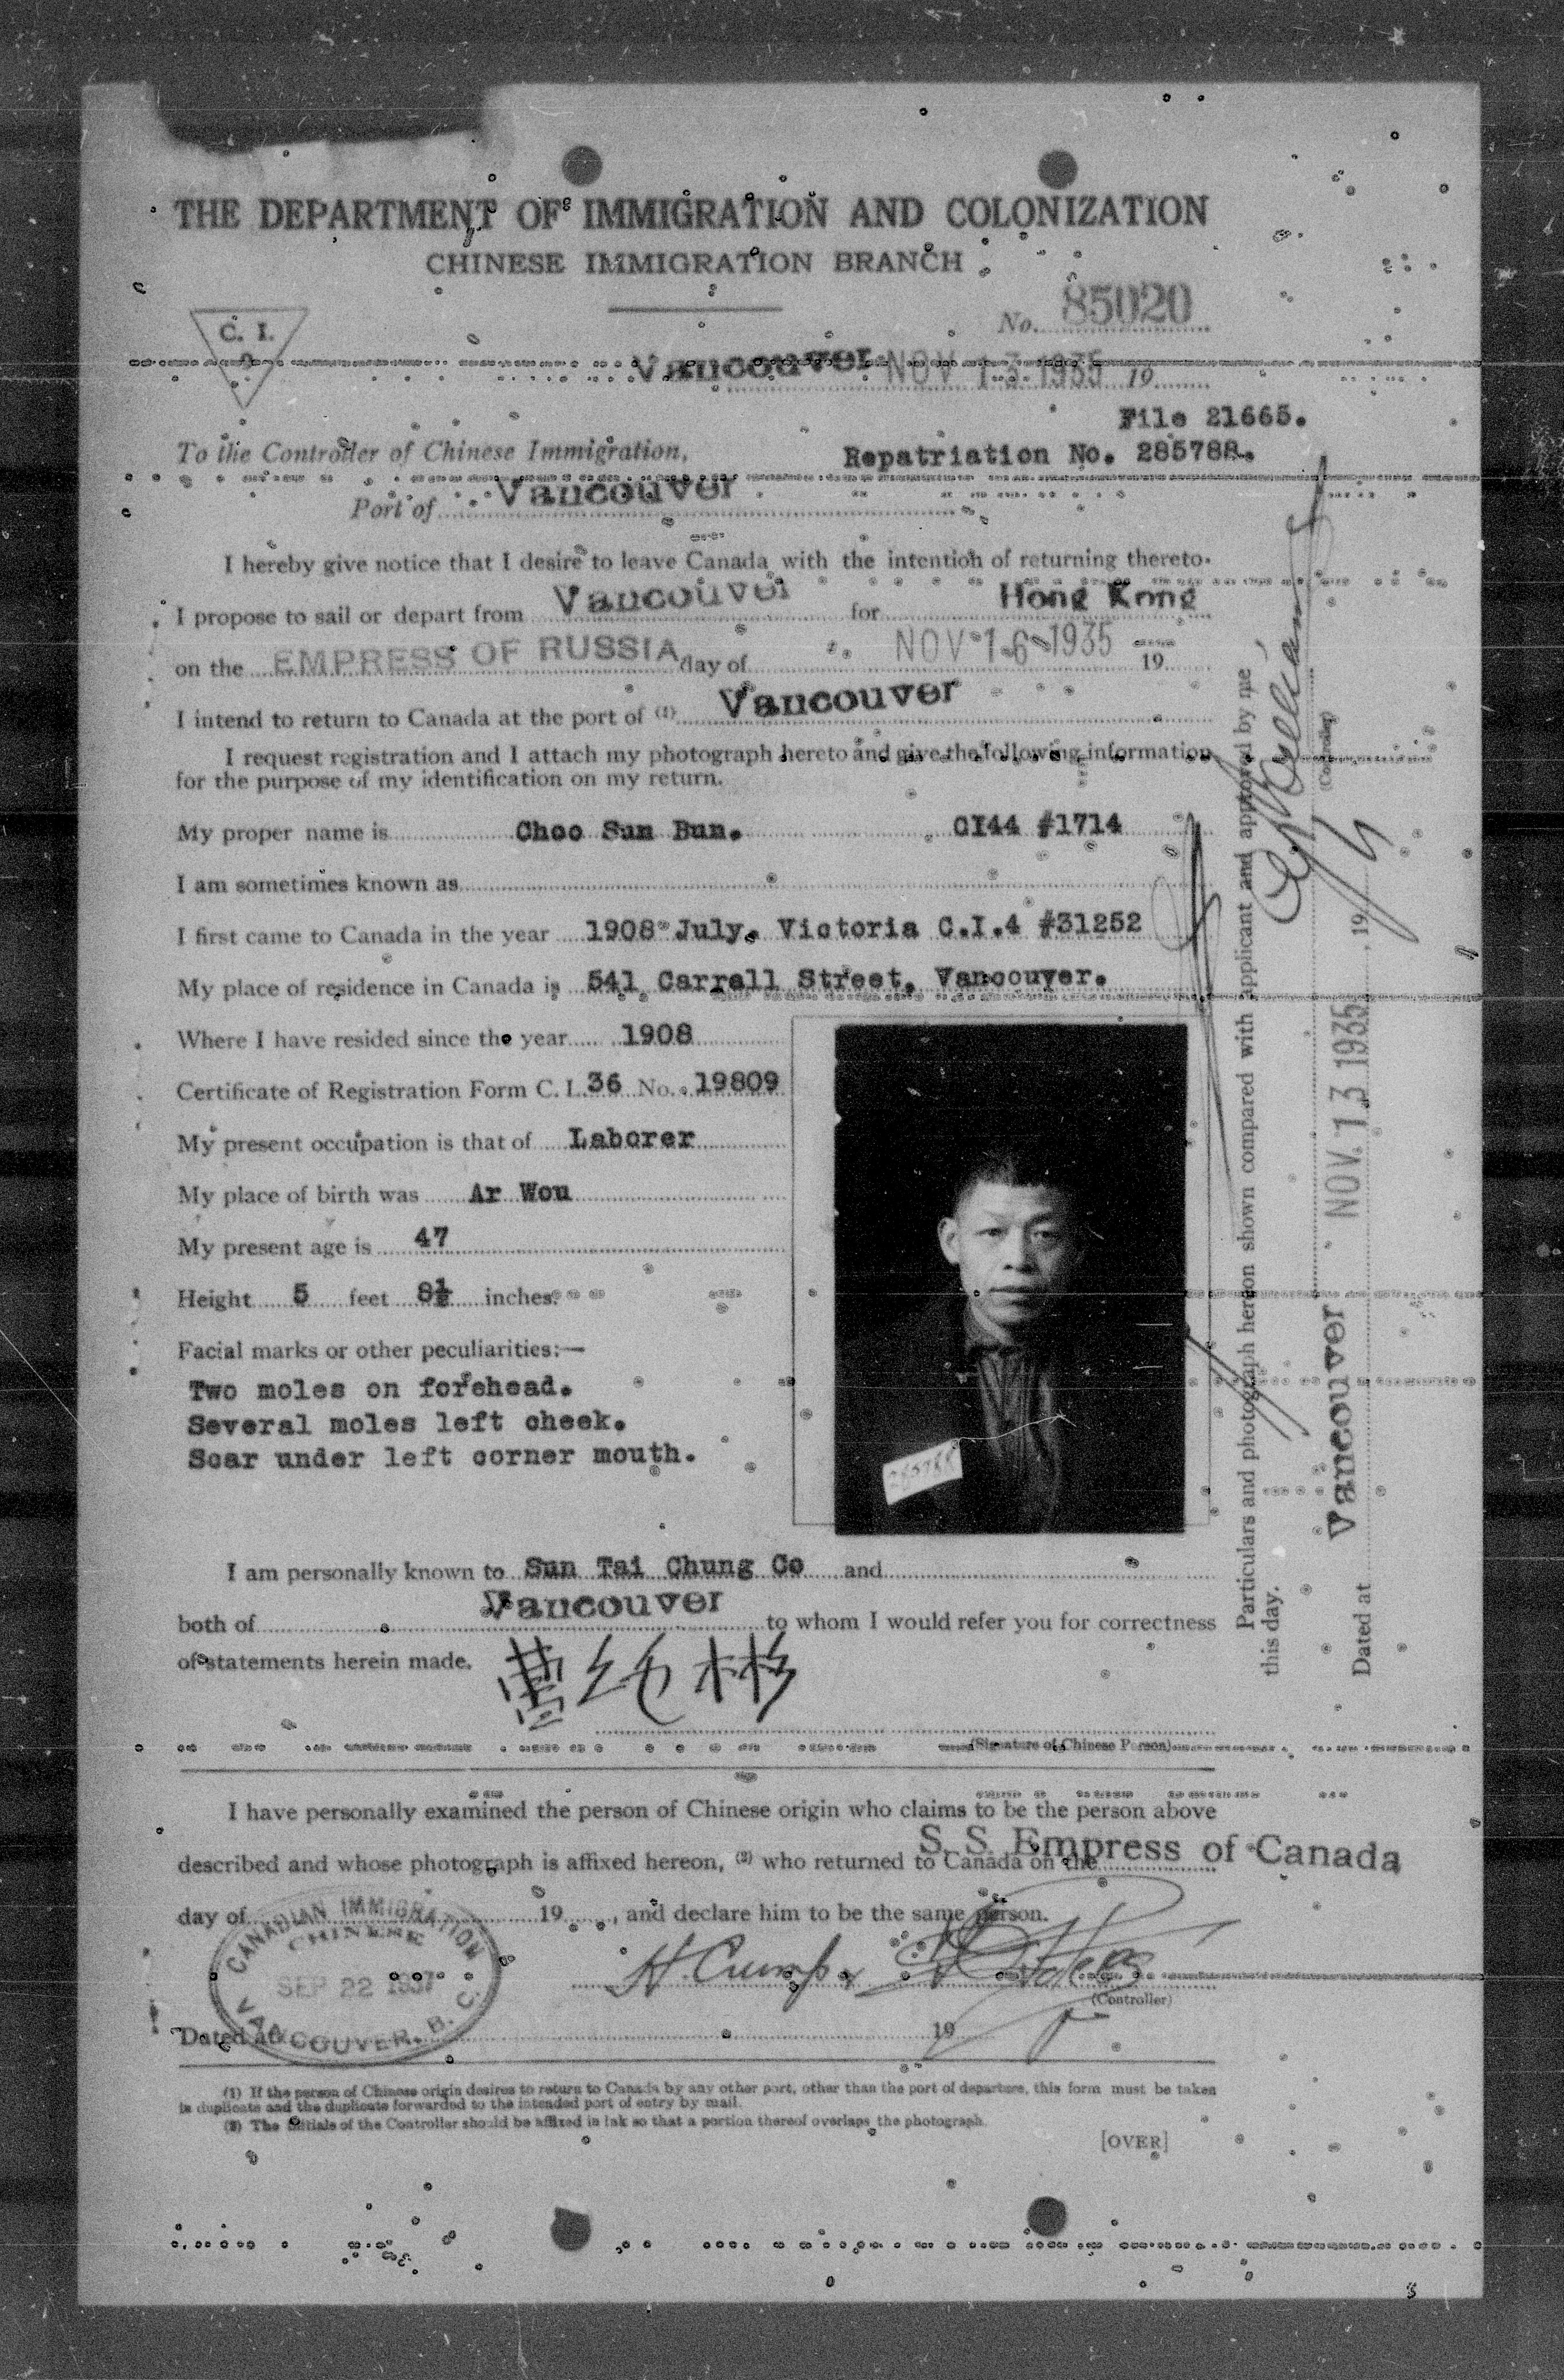 THE DEPARTMENT OF IMMIGRATION AND COLONIZATION
CHINESE IMMIGRATION BRANCH
No. 85020
C. I.
9
Vancouver NOV 13 1935 19
File 21665.
To the Controller of Chinese Immigration,
Repatriation No. 285788.
Port of Vancouver
I hereby give notice that I desire to leave Canada with the intention of returning thereto.
I propose to sail or depart from Vancouver for Hong Kong
on the EMPRESS OF RUSSIA day of NOV 16 1935 19
I intend to return to Canada at the port of (1) Vancouver
I request registration and I attach my photograph hereto and give the following information
for the purpose of my identification on my return.
My proper name is Choo Sun Bun. CI44 #1714
I am sometimes known as
I first came to Canada in the year 1908 July. Victoria C.I.4 #31252
My place of residence in Canada is 541 Carrall Street, Vancouver.
Where I have resided since the year 1908
Certificate of Registration Form C. I. 36 No. 19809
My present occupation is that of Laborer
My place of birth was Ar Wou
My present age is 47
Height 5 feet 8½ inches.
Facial marks or other peculiarities:—
Two moles on forehead.
Several moles left cheek.
Scar under left corner mouth.
285788
I am personally known to Sun Tai Chung Co and
both of Vancouver to whom I would refer you for correctness
of statements herein made.
(Signature of Chinese Person)
I have personally examined the person of Chinese origin who claims to be the person above
described and whose photograph is affixed hereon, (2) who returned to Canada on the S. S. Empress of Canada
day of 19 , and declare him to be the same person.
CANADIAN IMMIGRATION
CHINESE
SEP 22 1937
VANCOUVER, B. C.
H. Crump
(Controller)
Dated at 19
(1) If the person of Chinese origin desires to return to Canada by any other port, other than the port of departure, this form must be taken
in duplicate and the duplicate forwarded to the intended port of entry by mail.
(2) The initials of the Controller should be affixed in ink so that a portion thereof overlaps the photograph.
[OVER]
Particulars and photograph hereon shown compared with applicant and approved by me
this day.
(Controller)
Dated at Vancouver NOV. 13 1935 , 19